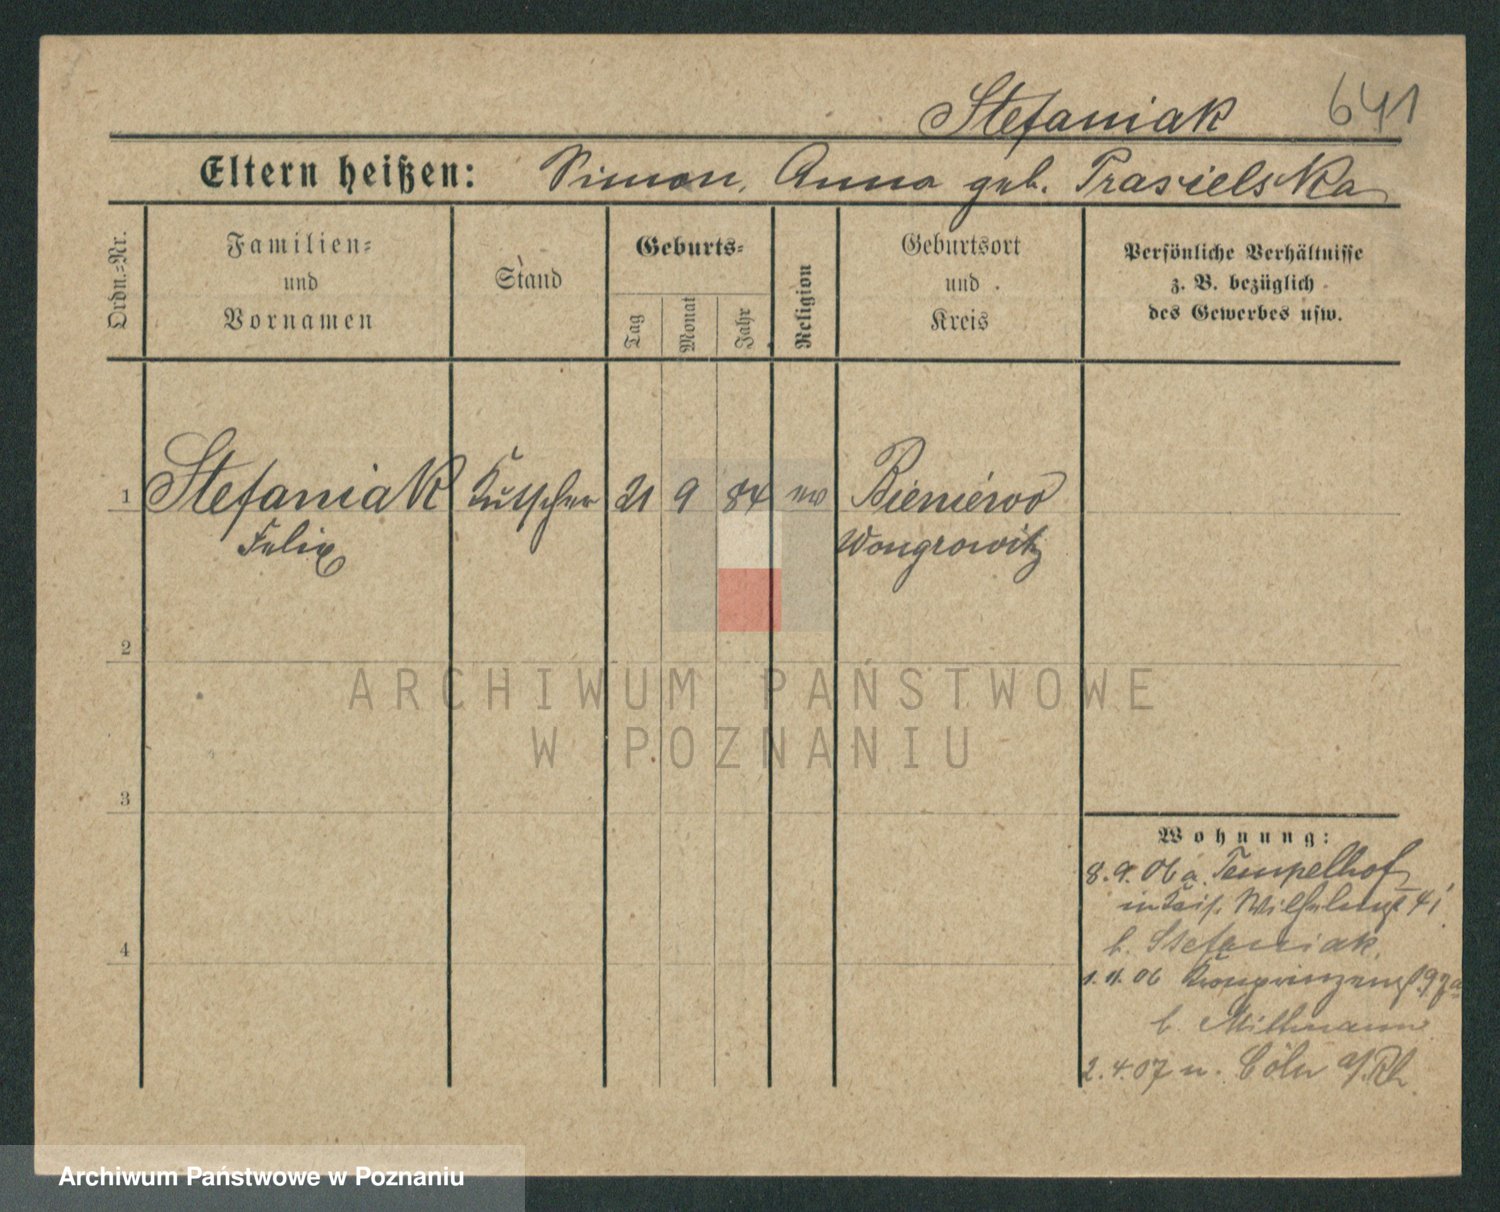 Stefaniak 641
Eltern heißen: Simon, Anna geb. Prasielska
Ordn.=Nr.
Familien=
und
Vornamen
Stand
Geburts=
Tag
Monat
Jahr
Religion
Geburtsort
und
Kreis
Persönliche Verhältnisse
z. B. bezüglich
des Gewerbes usw.
1 Stefaniak Kutscher 21 9 84 Bieniewo
Felix Wongrowitz
2
3
4
ARCHIWUM PAŃSTWOWE
W POZNANIU
Wohnung:
8.9.06 a. Tempelhof
in Kais. Wilhelmst 41
b. Stefaniak.
1.11.06 Kronprinzenst 97a
b. Mittmann
2.4.07 n. Cöln a/Rh.
Archiwum Państwowe w Poznaniu